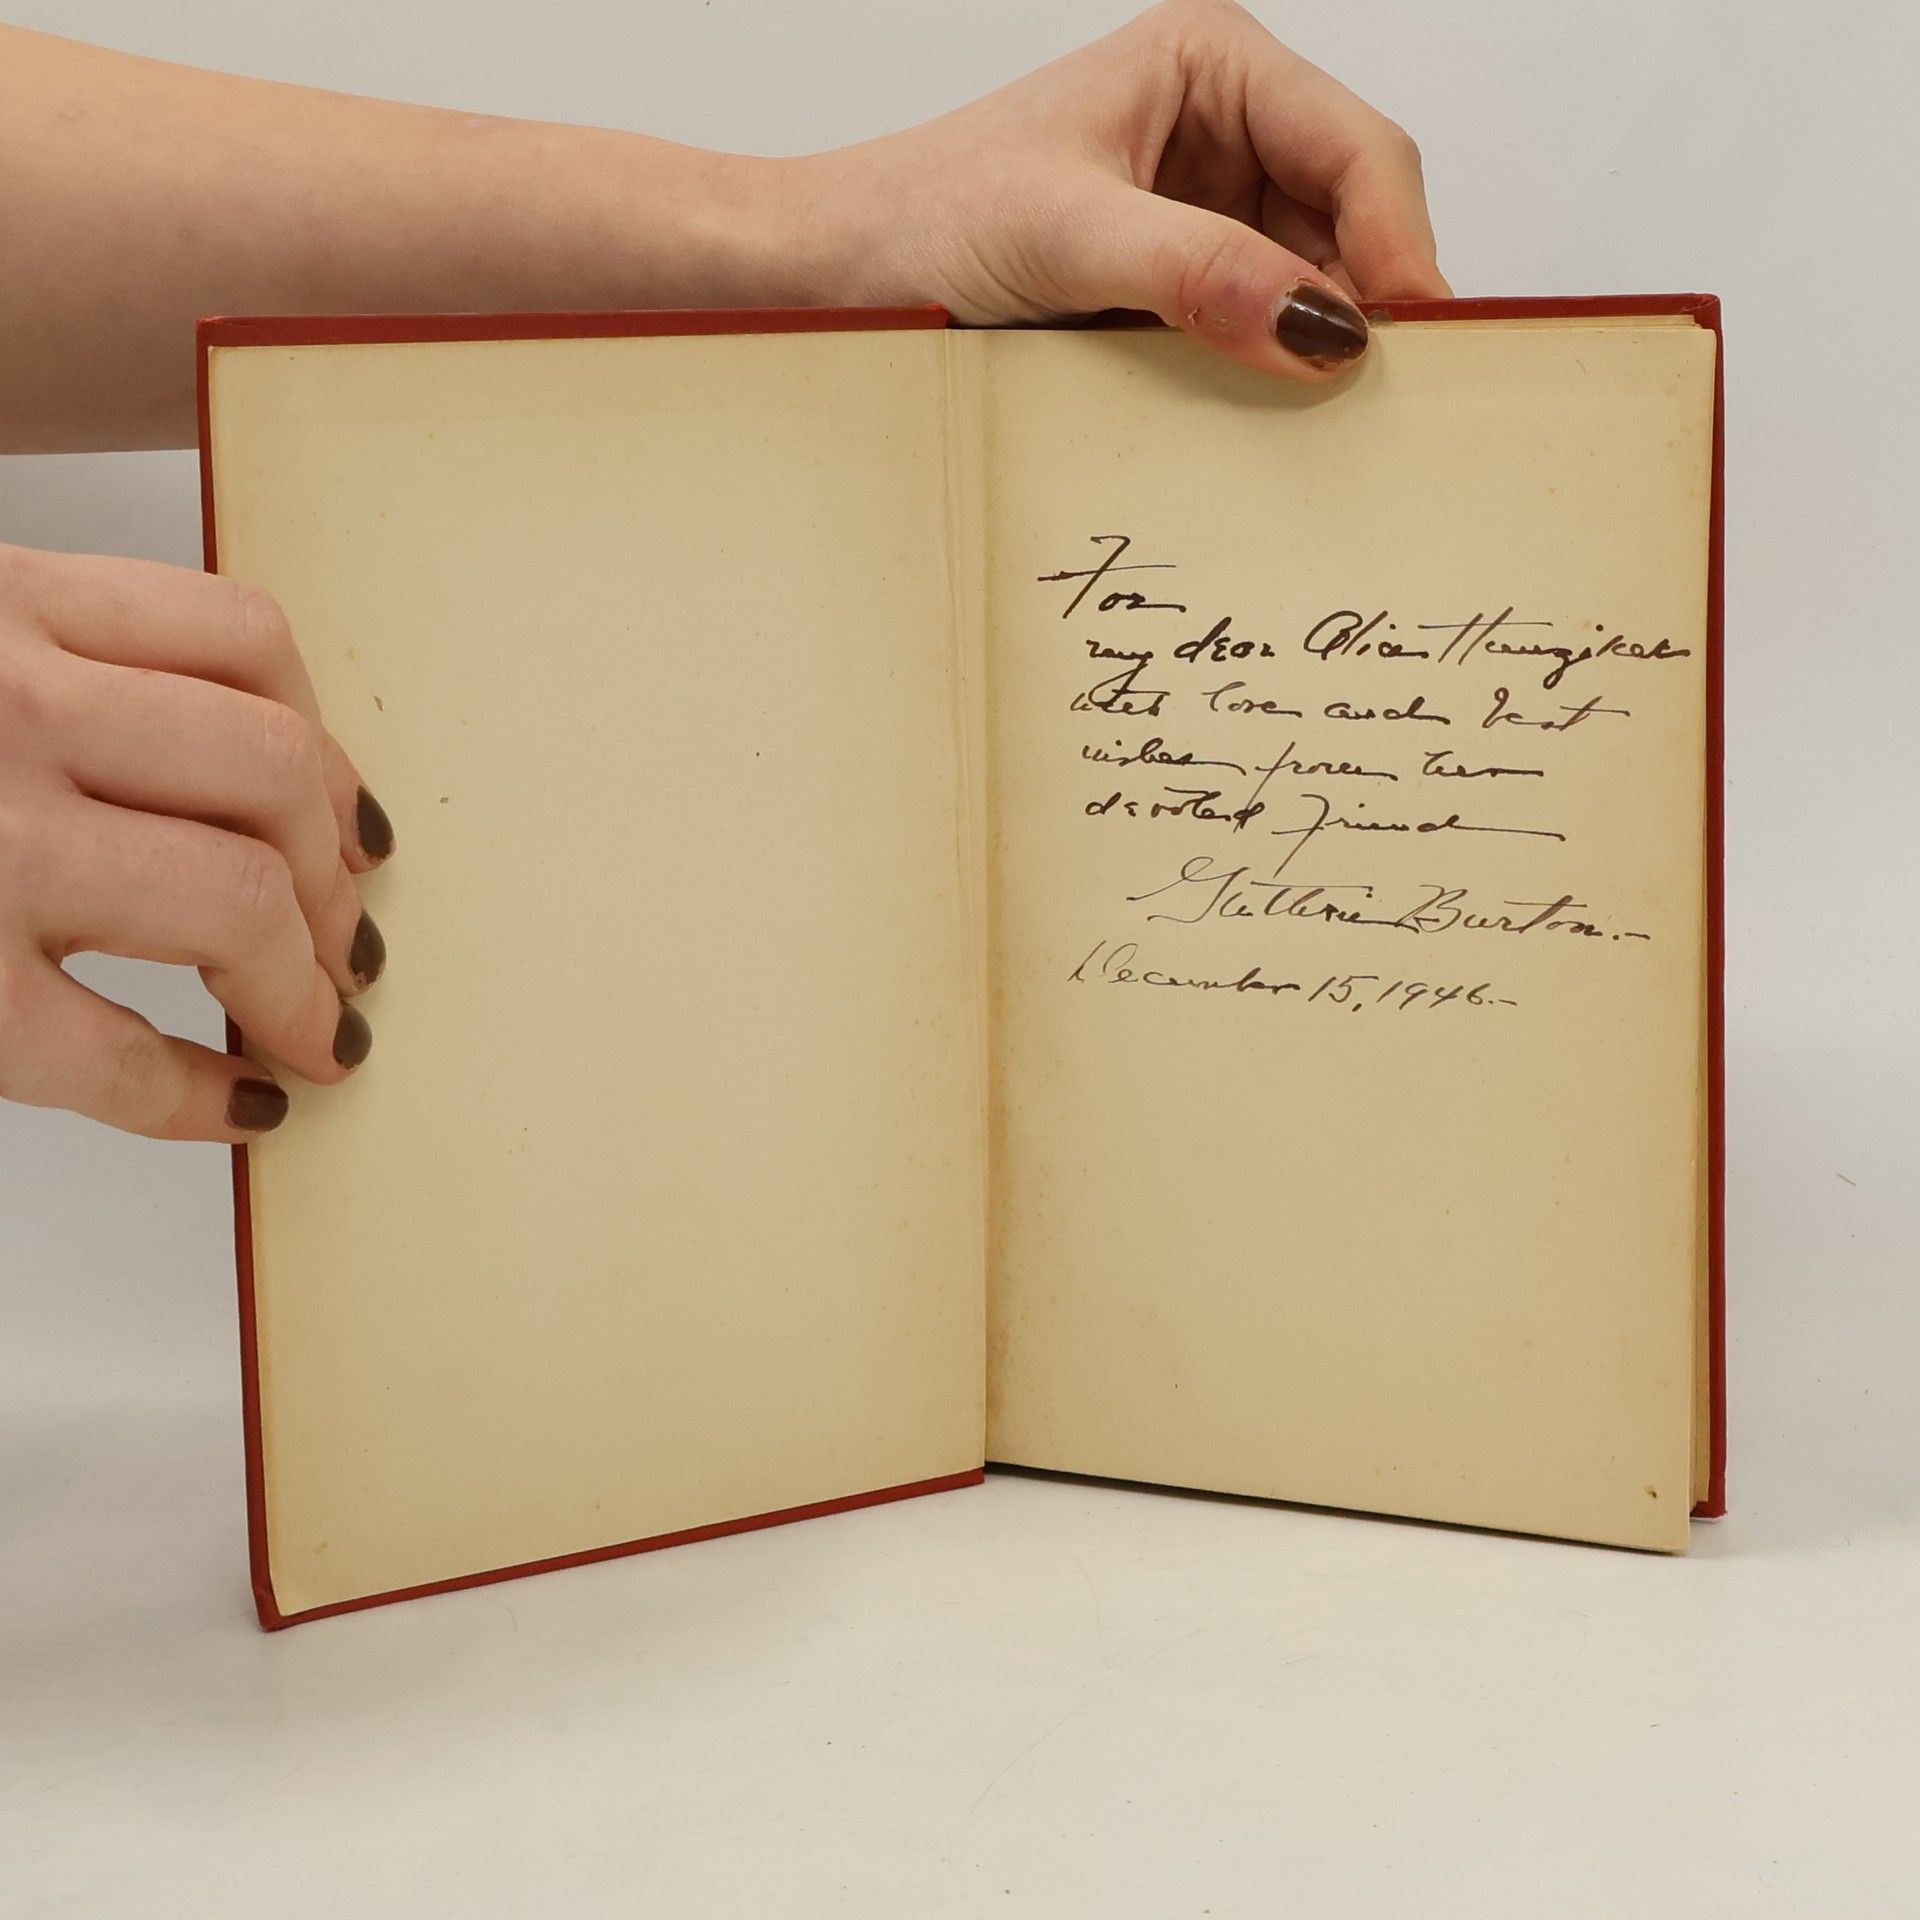 For
my dear Alice Hunziker
with love and best
wishes from her
devoted friend
Guthrie Burton.–
December 15, 1946.–